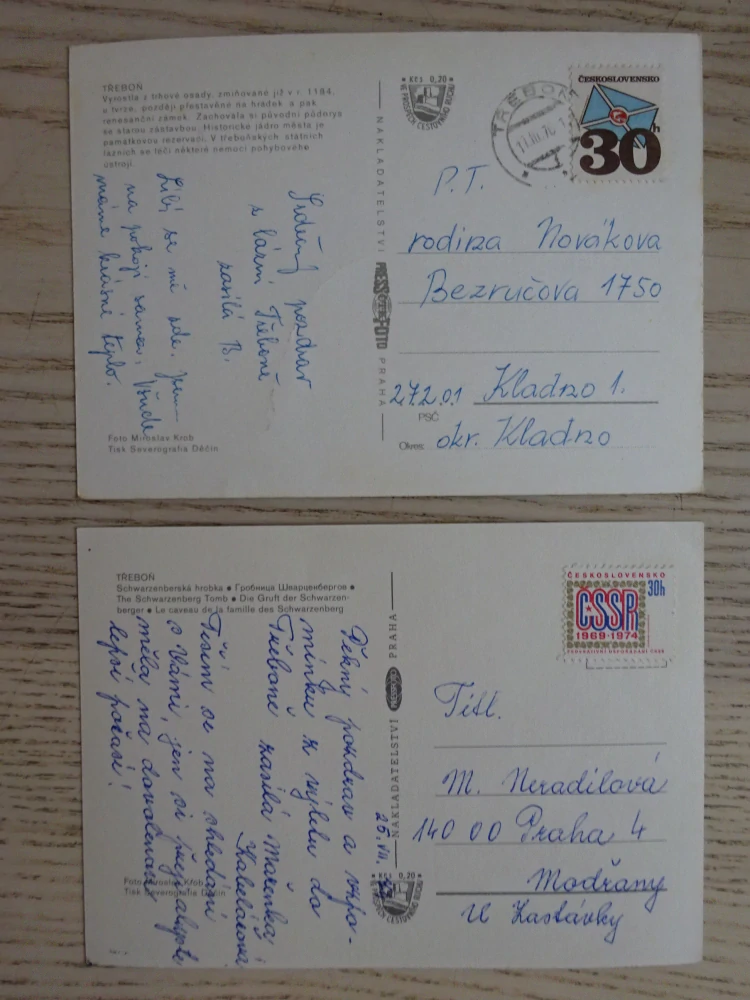 TŘEBOŇ
Vyrostla z trhové osady, zmiňované již v r. 1184,
a tvrze, později přestavěné na hrádek a pak
renesanční zámek. Zachovala si původní půdorys
se starou zástavbou. Historické jádro města je
památkovou rezervací. V třeboňských státních
lázních se léčí některé nemoci pohybového
ústrojí.
Srdečný pozdrav
z lázní Třeboně
zasílá B.
Líbí se mi zde. Jsem
na pokoji sama,
máme krásné teplo.
Foto Miroslav Krob
Tisk Severografia Děčín
NAKLADATELSTVÍ PRESSFOTO PRAHA
Kčs 0,20
VE PROSPĚCH CESTOVNÍHO RUCHU
TŘEBOŇ
ČESKOSLOVENSKO
30h
P.T.
rodina Novákova
Bezručova 1750
272 01 Kladno 1.
PSČ
Okres okr. Kladno
TŘEBOŇ
Schwarzenberská hrobka • Гробница Шварценбергов •
The Schwarzenberg Tomb • Die Gruft der Schwarzen-
berger • Le caveau de la famille des Schwarzenberg
Pěkný pozdrav a vzpo-
mínku z výletu do
Třeboně zasílá Mařenka
Kabeláčová
Těším se na shledání
s Vámi, jen si přeji abyste
měla na dovolenou
lepší počasí!
25. VII.
Foto Miroslav Krob
Tisk Severografia Děčín
NAKLADATELSTVÍ PRESSFOTO PRAHA
Kčs 0,20
VE PROSPĚCH CESTOVNÍHO RUCHU
ČESKOSLOVENSKO
30h
ČSSR
1969-1974
FEDERATIVNÍ USPOŘÁDÁNÍ ČSSR
Titl.
M. Neradilová
140 00 Praha 4
Modřany
U Zastávky